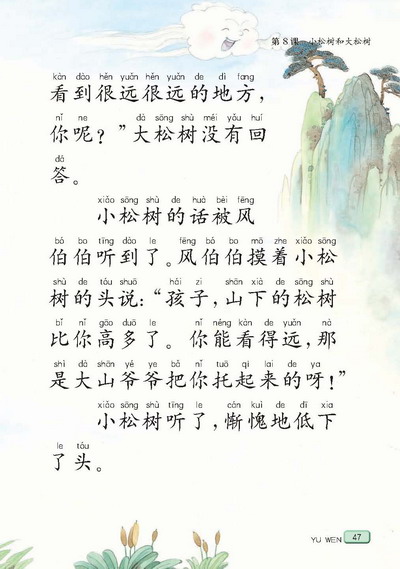 第8课 小松树和大松树
kàn dào hěn yuǎn hěn yuǎn de dì fang
看到很远很远的地方，
nǐ ne dà sōng shù méi yǒu huí
你呢？”大松树没有回
dá
答。
xiǎo sōng shù de huà bèi fēng
小松树的话被风
bó bo tīng dào le fēng bó bo mō zhe xiǎo sōng
伯伯听到了。风伯伯摸着小松
shù de tóu shuō hái zi shān xià de sōng shù
树的头说：“孩子，山下的松树
bǐ nǐ gāo duō le nǐ néng kàn de yuǎn nà
比你高多了。你能看得远，那
shì dà shān yé ye bǎ nǐ tuō qǐ lai de ya
是大山爷爷把你托起来的呀！”
xiǎo sōng shù tīng le cán kuì de dī xià
小松树听了，惭愧地低下
le tóu
了头。
YU WEN 47